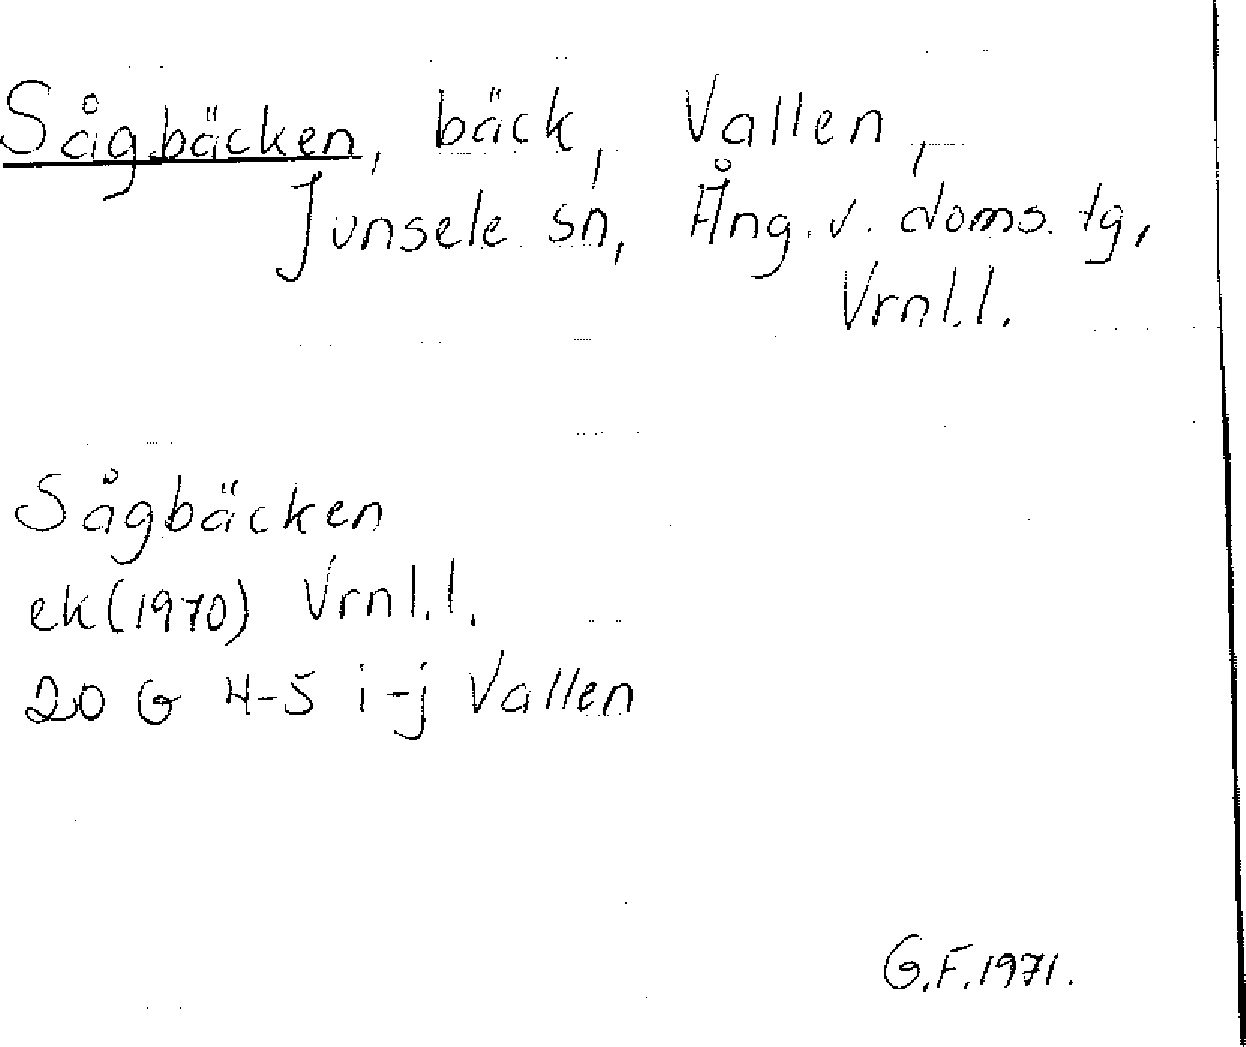 Sågbäcken, bäck, Vallen,
Junsele sn, Ång. v. doms. tg,
Vrnl.l.
Sågbäcken
ek (1970) Vrnl.l.
20 G 4-5 i-j Vallen
G.F. 1971.